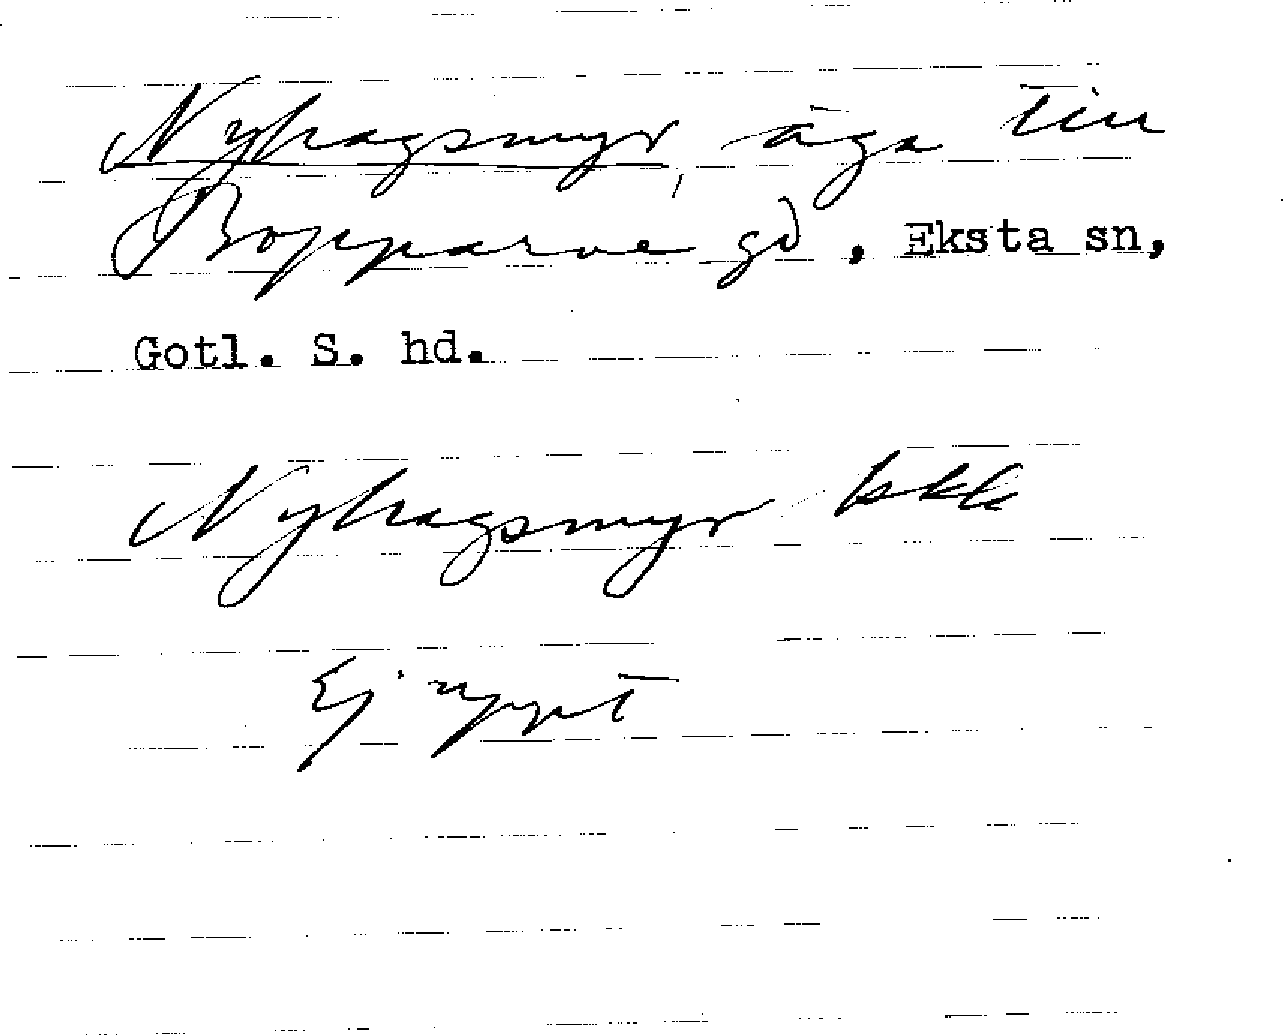 Nyhagsmyr, äga till
Bopparve gd, Eksta sn,
Gotl. S. hd.
Nyhagsmyr kkk
Ej uppt